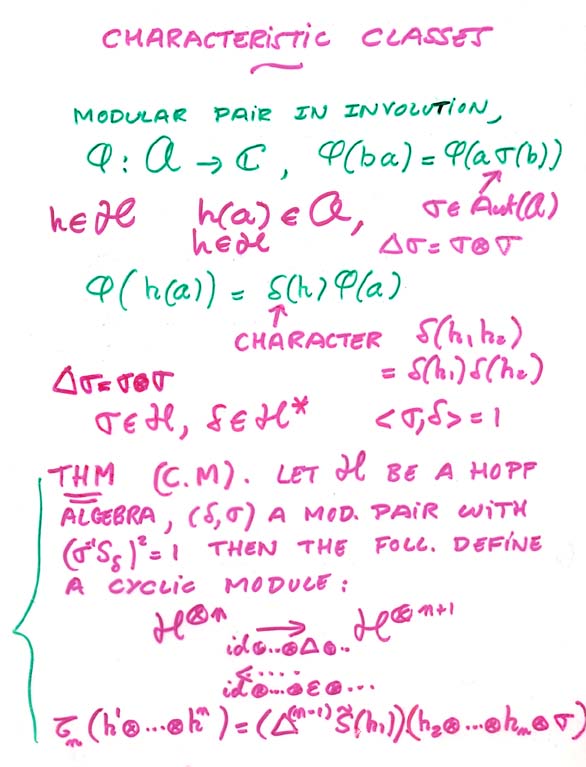 CHARACTERISTIC CLASSES
MODULAR PAIR IN INVOLUTION,
φ : A → C, φ(ba) = φ(aσ(b))
h∈H h(a) ∈ A, σ∈ Aut(A)
h∈H Δσ = σ⊗σ
φ(h(a)) = δ(h)φ(a)
CHARACTER δ(h₁h₂)
= δ(h₁)δ(h₂)
Δσ=σ⊗σ
σ∈H, δ∈H* <σ,δ> = 1
THM (C.M). LET H BE A HOPF
ALGEBRA, (δ,σ) A MOD. PAIR WITH
(σ⁻¹S_δ)² = 1 THEN THE FOLL. DEFINE
A CYCLIC MODULE:
H^⊗n → H^⊗n+1
id⊗...⊗Δ⊗..
←.....
id⊗...⊗ε⊗...
τ_n (h¹⊗...⊗hⁿ) = (Δ^(n-1) S̃(h₁))(h₂⊗...⊗h_n⊗σ)